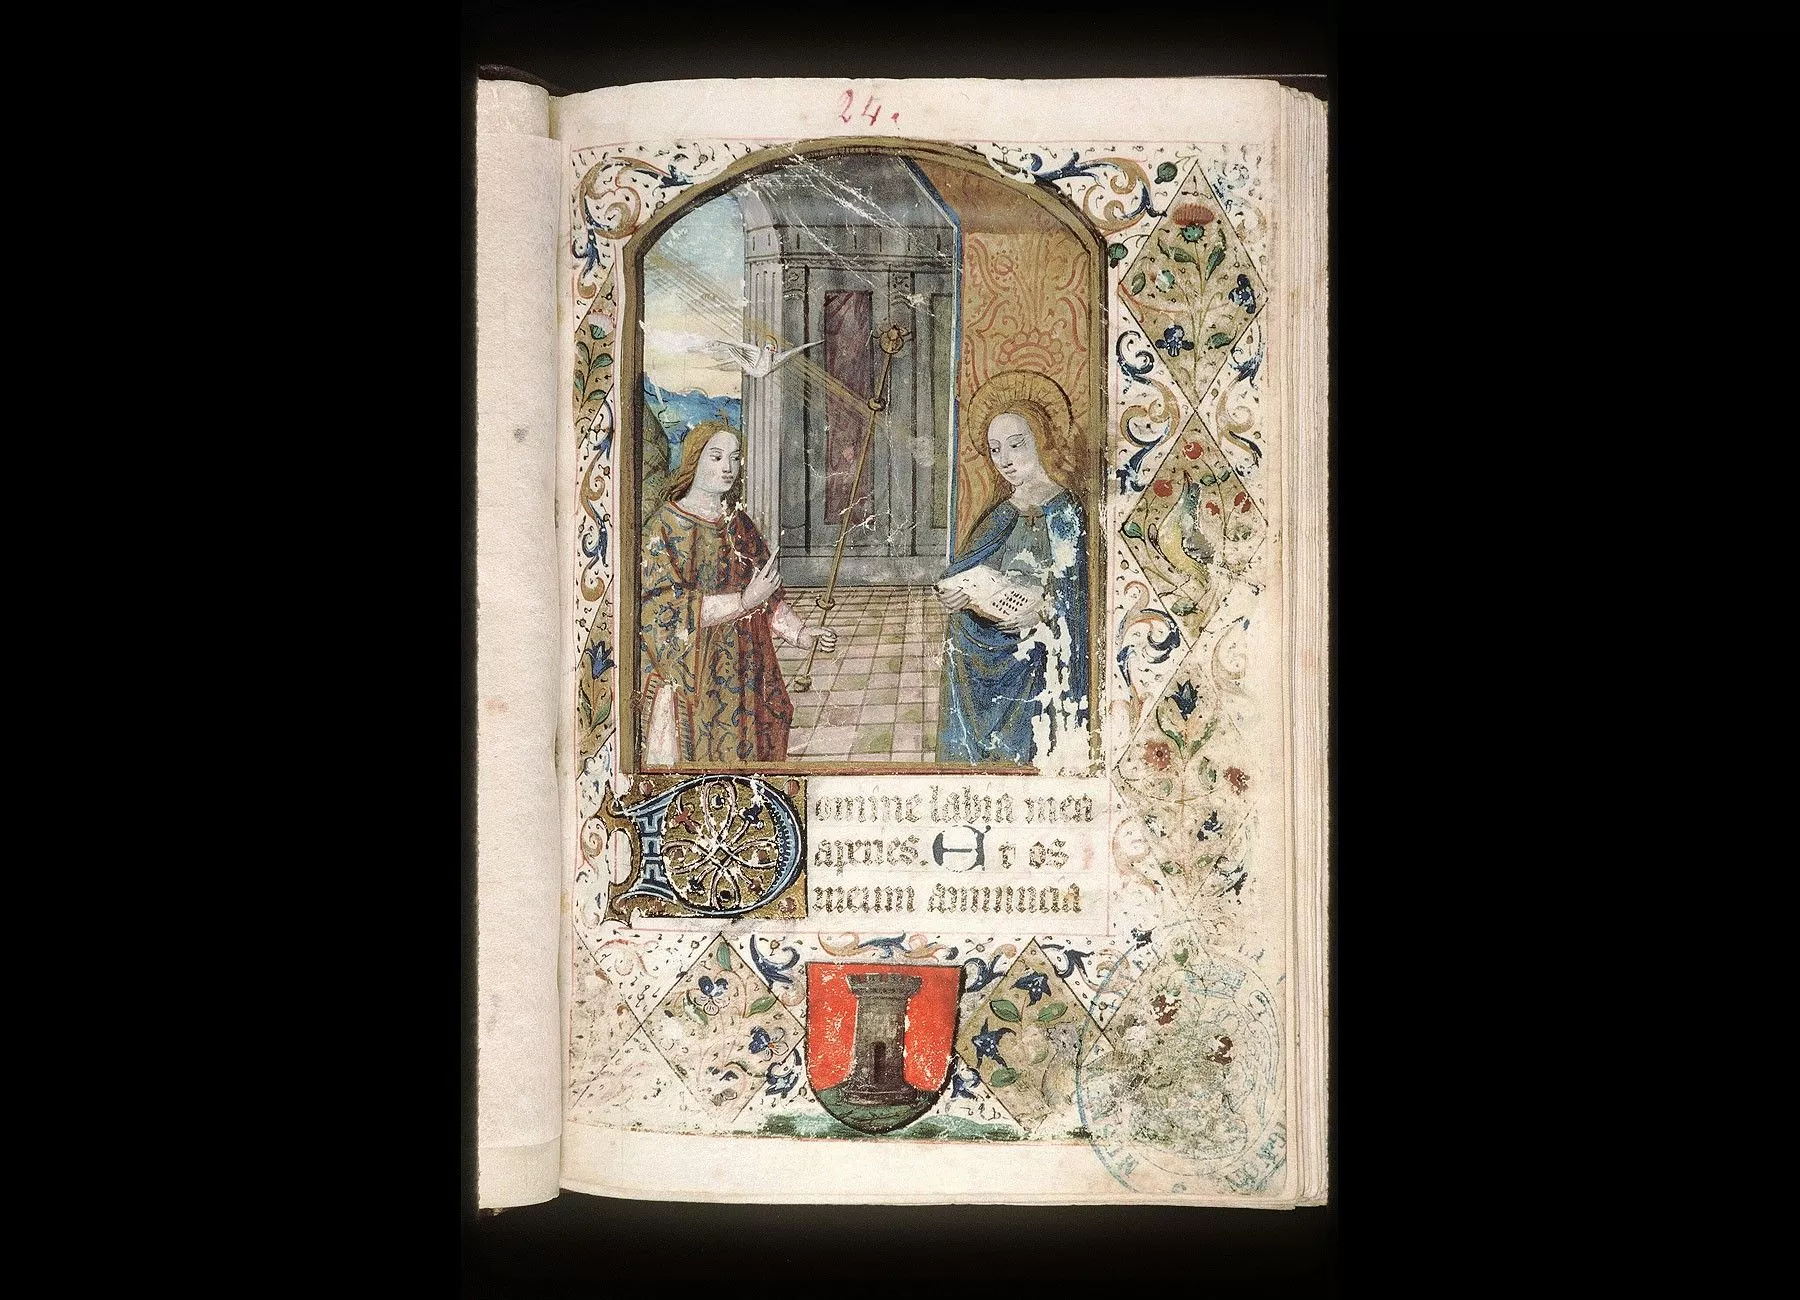 24.
Domine labia mea
aperies. Et os
meum annuncia